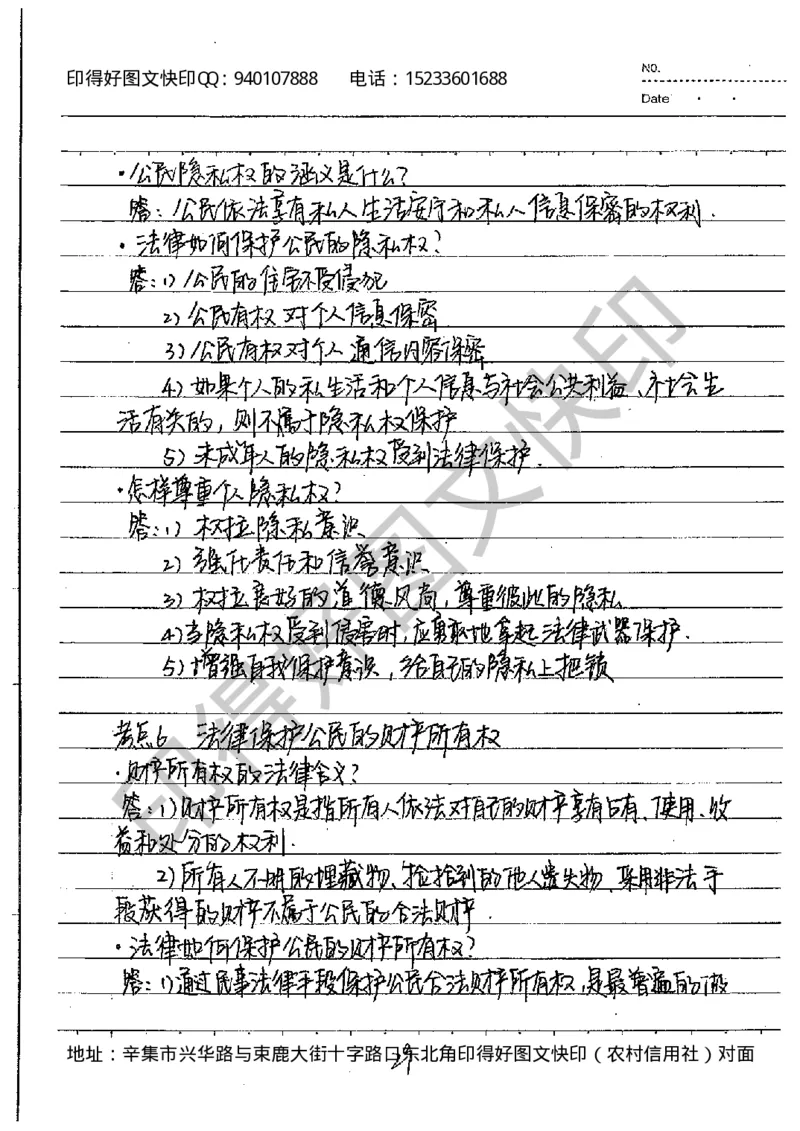 印得好图文快印QQ：940107888 电话：15233601688
NO.
Date · ·
·公民隐私权的涵义是什么？
答：公民依法享有私人生活安宁和私人信息保密的权利．
·法律如何保护公民的隐私权？
答：1）公民的住宅不受侵犯
2）公民有权对个人信息保密
3）公民有权对个人通信内容保密
4）如果个人的私生活和个人信息与社会公共利益、社会生
活有关的，则不属于隐私权保护
5）未成年人的隐私权受到法律保护．
·怎样尊重个人隐私权？
答：1）树立隐私意识
2）强化责任和信誉意识
3）树立良好的道德风尚，尊重彼此的隐私
4）当隐私权受到侵害时，应勇敢地拿起法律武器保护．
5）增强自我保护意识，给自己的隐私上把锁
考点6 法律保护公民的财产所有权
·财产所有权的法律含义？
答：1）财产所有权是指所有人依法对自己的财产享有占有、使用、收
益和处分的权利．
2）所有人不明的埋藏物、捡拾到的他人遗失物、采用非法手
段获得的财产不属于公民的合法财产．
·法律如何保护公民的财产所有权？
答：1）通过民事法律手段保护公民合法财产所有权，是最普遍的做
地址：辛集市兴华路与束鹿大街十字路口东北角印得好图文快印（农村信用社）对面
29
印得好图文快印